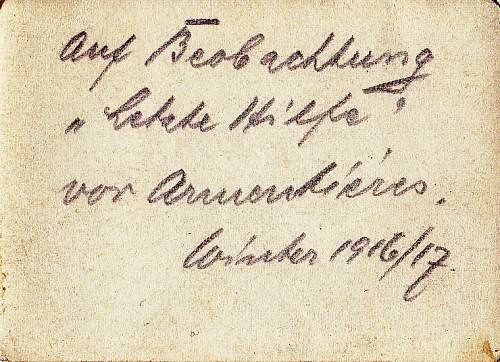 Auf Beobachtung
„letzte Hilfe“
vor Armentières.
Winter 1916/17